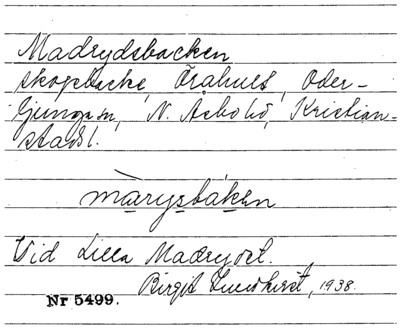 Madrydsbacken
skogsbacke, Örahult, Oder-
ljunga sn, N. Åsbo hd, Kristian-
stads l.
màrysbáken
Vid Lilla Madrydet.
Birgit Lundkvist, 1938.
Nr 5499.